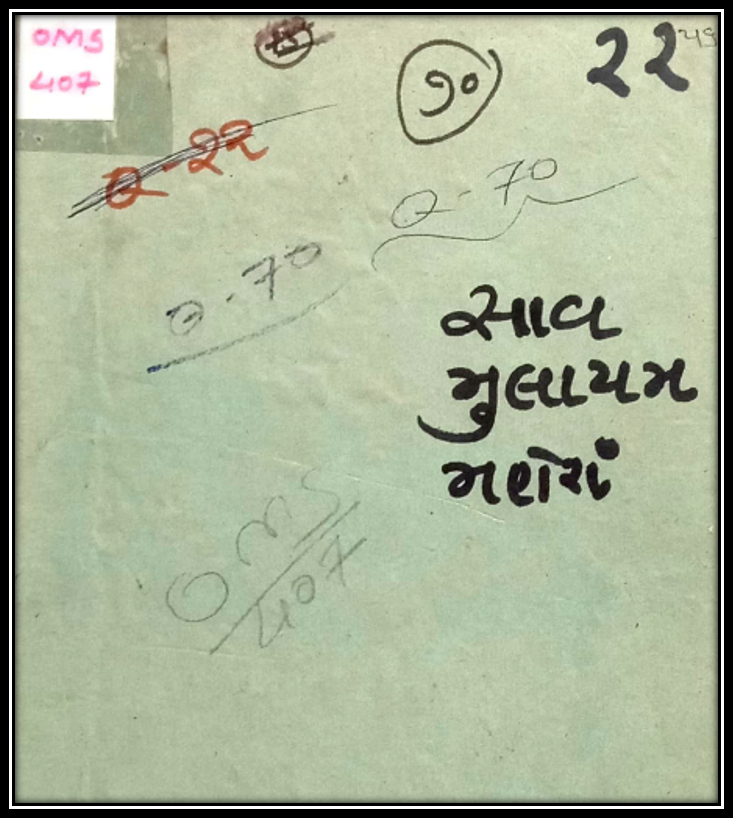 OMS
407
૭૦
૨૨
૨-૨૨
Q-70
૨-70
સાવ
મુલાયમ
મણેરાં
OMS
407